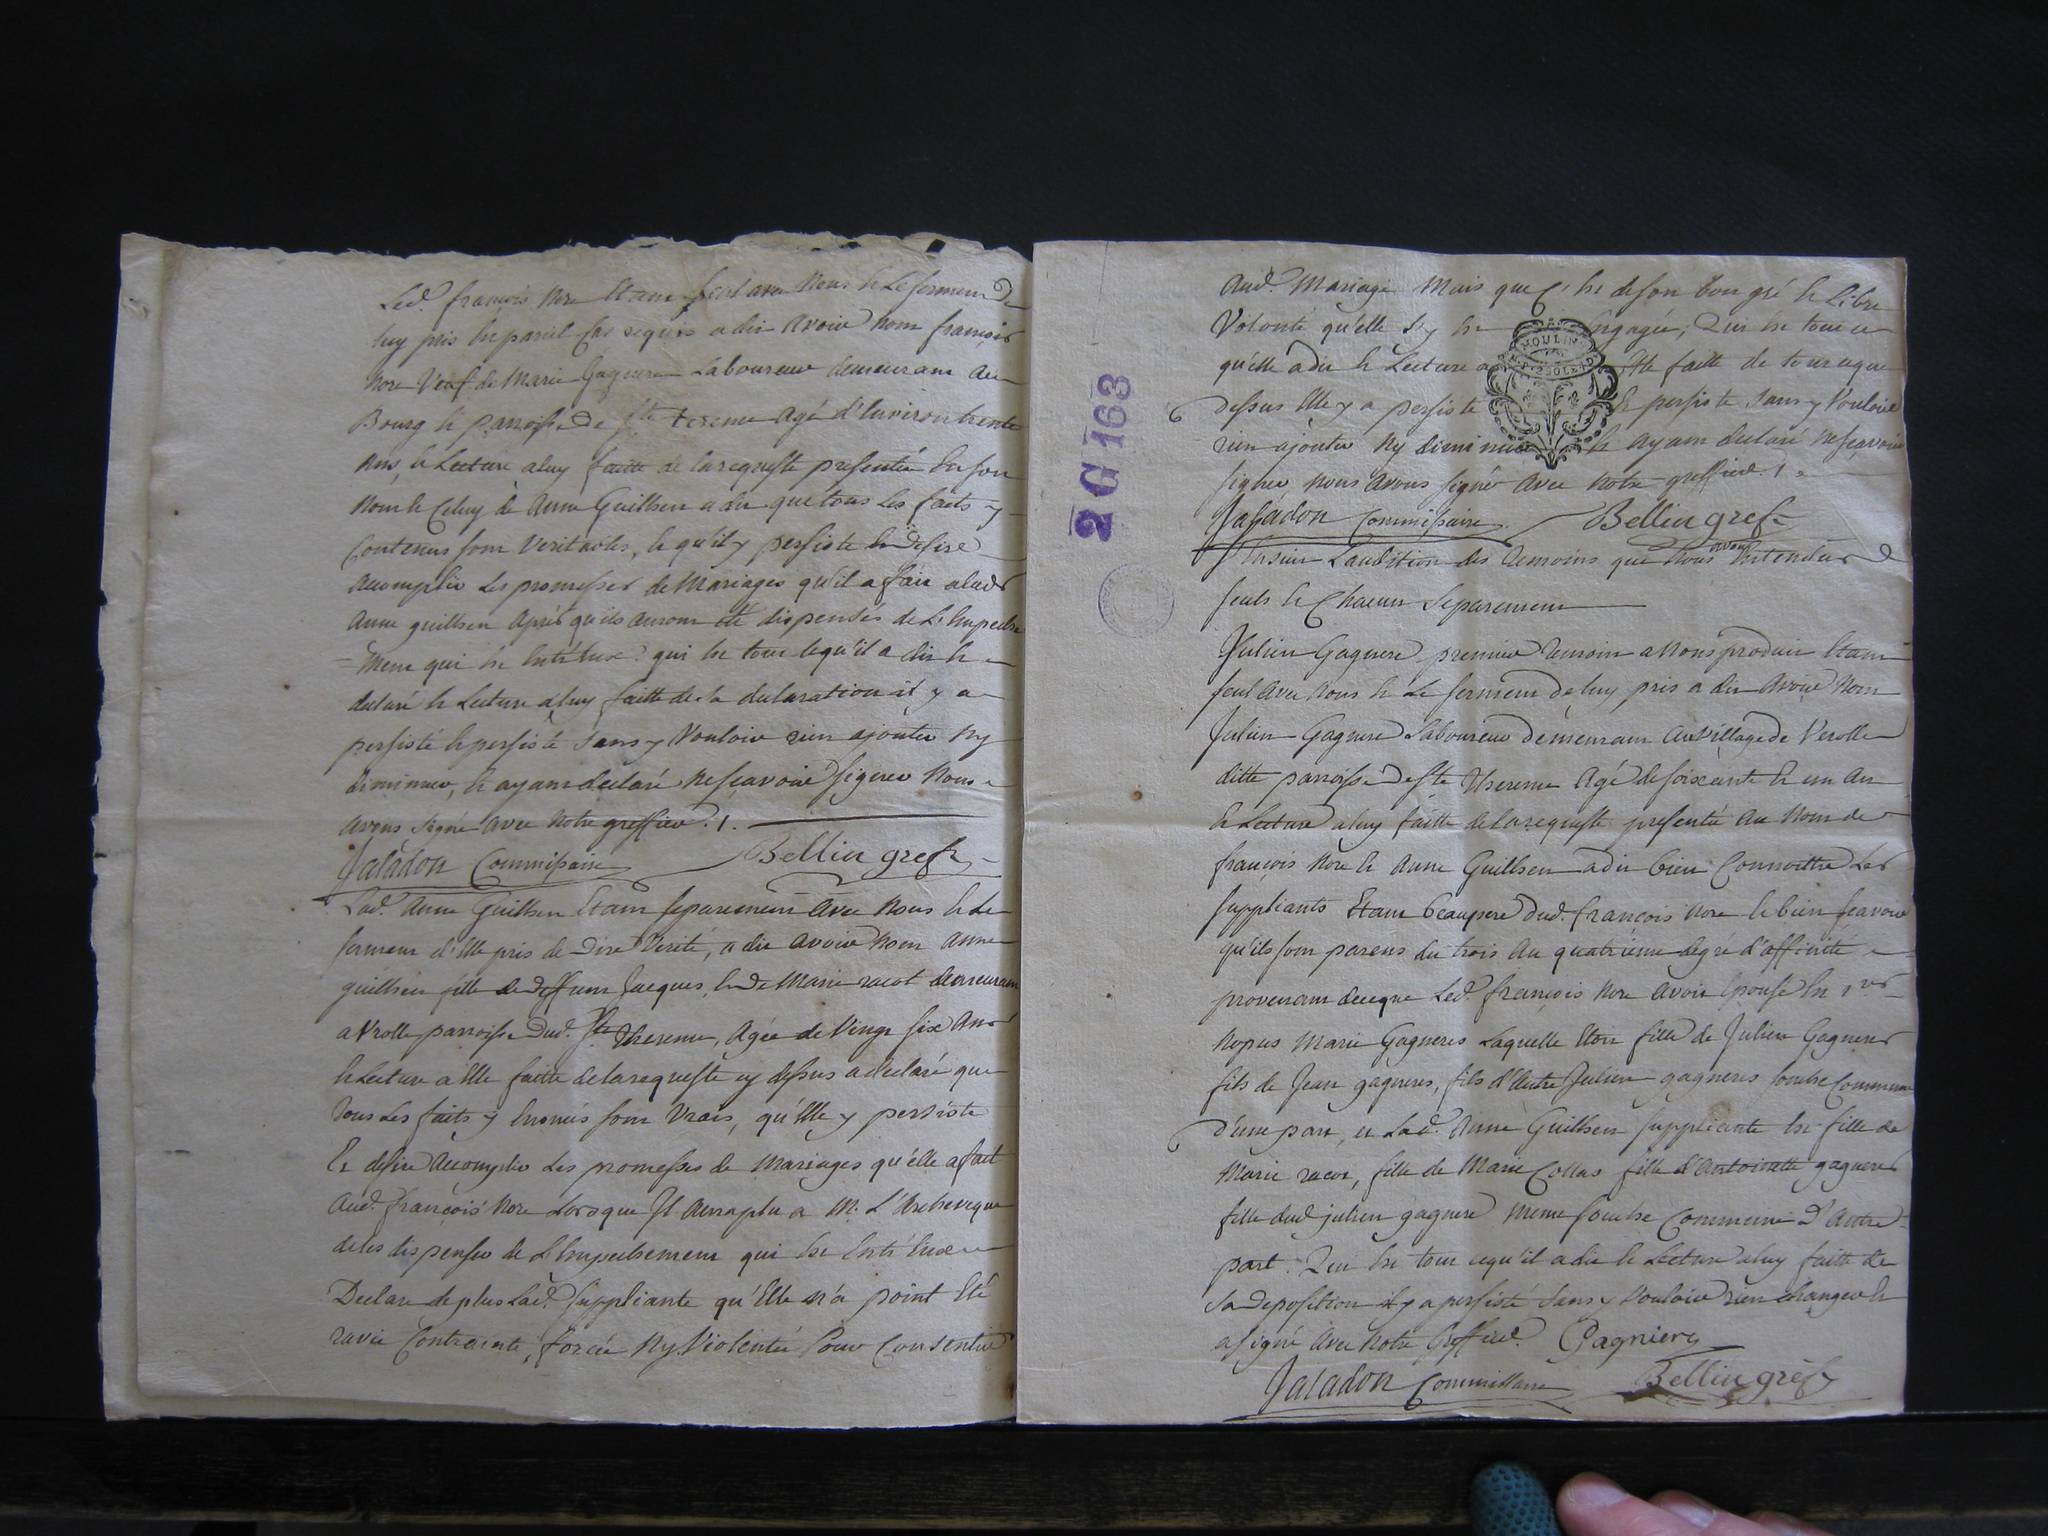 Led. françois Nore Etant seul avec Nous et Le serment De
luy pris En pareil Cas requis a dit avoir nom françois
Nore Veuf de Marie Gagnere Laboureur demeurant au
Bourg et parroisse De Ste terence Agé d'Environ trente
ans, et Lecture a luy faitte de la requeste presentée En son
Nom et Celuy de Anne Guilhen a dit que tous Les faits y
Contenus sont Veritables, et qu'il y persiste et desire
accomplir Les promesses de Mariages qu'il a fait a lad.
Anne guilhen Après qu'ils auront été dispensés de L'Empeche
=ment qui Est Entr'Eux. qui Est tout ce qu'il a dit et
declaré et Lecture a luy faitte de sa declaration il y a
persisté et persiste sans y Vouloir rien ajouter Ny
diminuer, et ayant declaré Ne sçavoir signer Nous
avons signé avec Notre greffier ./.
Jaladon Commissaire Bellin greff.
Lad. Anne Guilhen Etant separement avec Nous et Le
serment d'Elle pris de Dire Verité, a dit avoir Nom Anne
guilhen fille de deffunt Jacques, et de Marie racot demeurant
a Vrolle parroisse Dud. Ste Therence, Agée de Vingt six Ans
et Lecture a Elle faitte de la requeste cy dessus a declaré que
tous Les faits y Enoncés sont Vrais, qu'Elle y persiste
Et desire accomplir Les promesses de Mariages qu'elle a fait
aud. françois Nore Lorsque Il aura plu a M. L'Archeveque
de les dispenser de L'Empechement qui Est Entr'Eux
Declare de plus Lad. suppliante qu'Elle n'a point Eté
ravie Contrainte, forcée Ny Violentée Pour Consentir
2 G 163
Aud. Mariage Mais que C'est de son bon gré et Libre
Volonté qu'elle s'y Est Engagée; Qui Est tout ce
qu'elle a dit et Lecture a Elle faitte de tout ce que
dessus Elle y a persisté Et persiste sans y Vouloir
rien ajouter Ny diminuer et ayant declaré Ne sçavoir
signer Nous Avons signé Avec Notre greffier ./.
MOULINS
Jaladon Commissaire Bellin greff.
S'ensuit L'audition des temoins que Nous avons Entendus
seuls et Chacun Separement
Julien Gagnere premier temoin a Nous produit Etant
seul Avec Nous et Le serment De luy pris a dit Avoir Nom
Julien Gagnere Laboureur Demeurant Au Village de Verolle
ditte parroisse De Ste Therence Agé de soixante Et un An
et Lecture a luy faitte de la requeste presentée Au Nom de
françois Nore et Anne Guilhen a dit bien Connoitre Les
suppliants Etant beaupere Dud. françois Nore et bien sçavoir
qu'ils sont parens du trois Au quatrieme degré d'affinité
provenant de ce que Led. françois Nore Avoit Epousé En 1res
Nopces Marie Gagneres Laquelle Etoit fille de Julien Gagneres
fils de Jean gagneres, fils d'Autre Julien gagneres souche Commune
d'une part, et Lad. Anne Guilhen suppliante Est fille de
Marie racot, fille de Marie Collas fille d'Antoinette gagneres
fille dud julien gagnere meme souche Commune D'Autre
part. Qui Est tout ce qu'il a dit et Lecture a luy faitte de
sa deposition il y a persisté sans y Vouloir rien changer et
a signé avec Notre Greffier. Gagniere
Jaladon Commissaire Bellin greff.